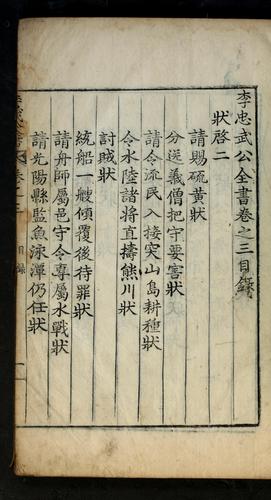 李忠武公全書卷之三目錄
狀啓二
請賜硫黃狀
分送義僧把守要害狀
請令流民入接突山島耕種狀
令水陸諸將直擣熊川狀
討賊狀
統船一艘傾覆後待罪狀
請舟師屬邑守令專屬水戰狀
請光陽縣監魚泳潭仍任狀
卷之三 目錄